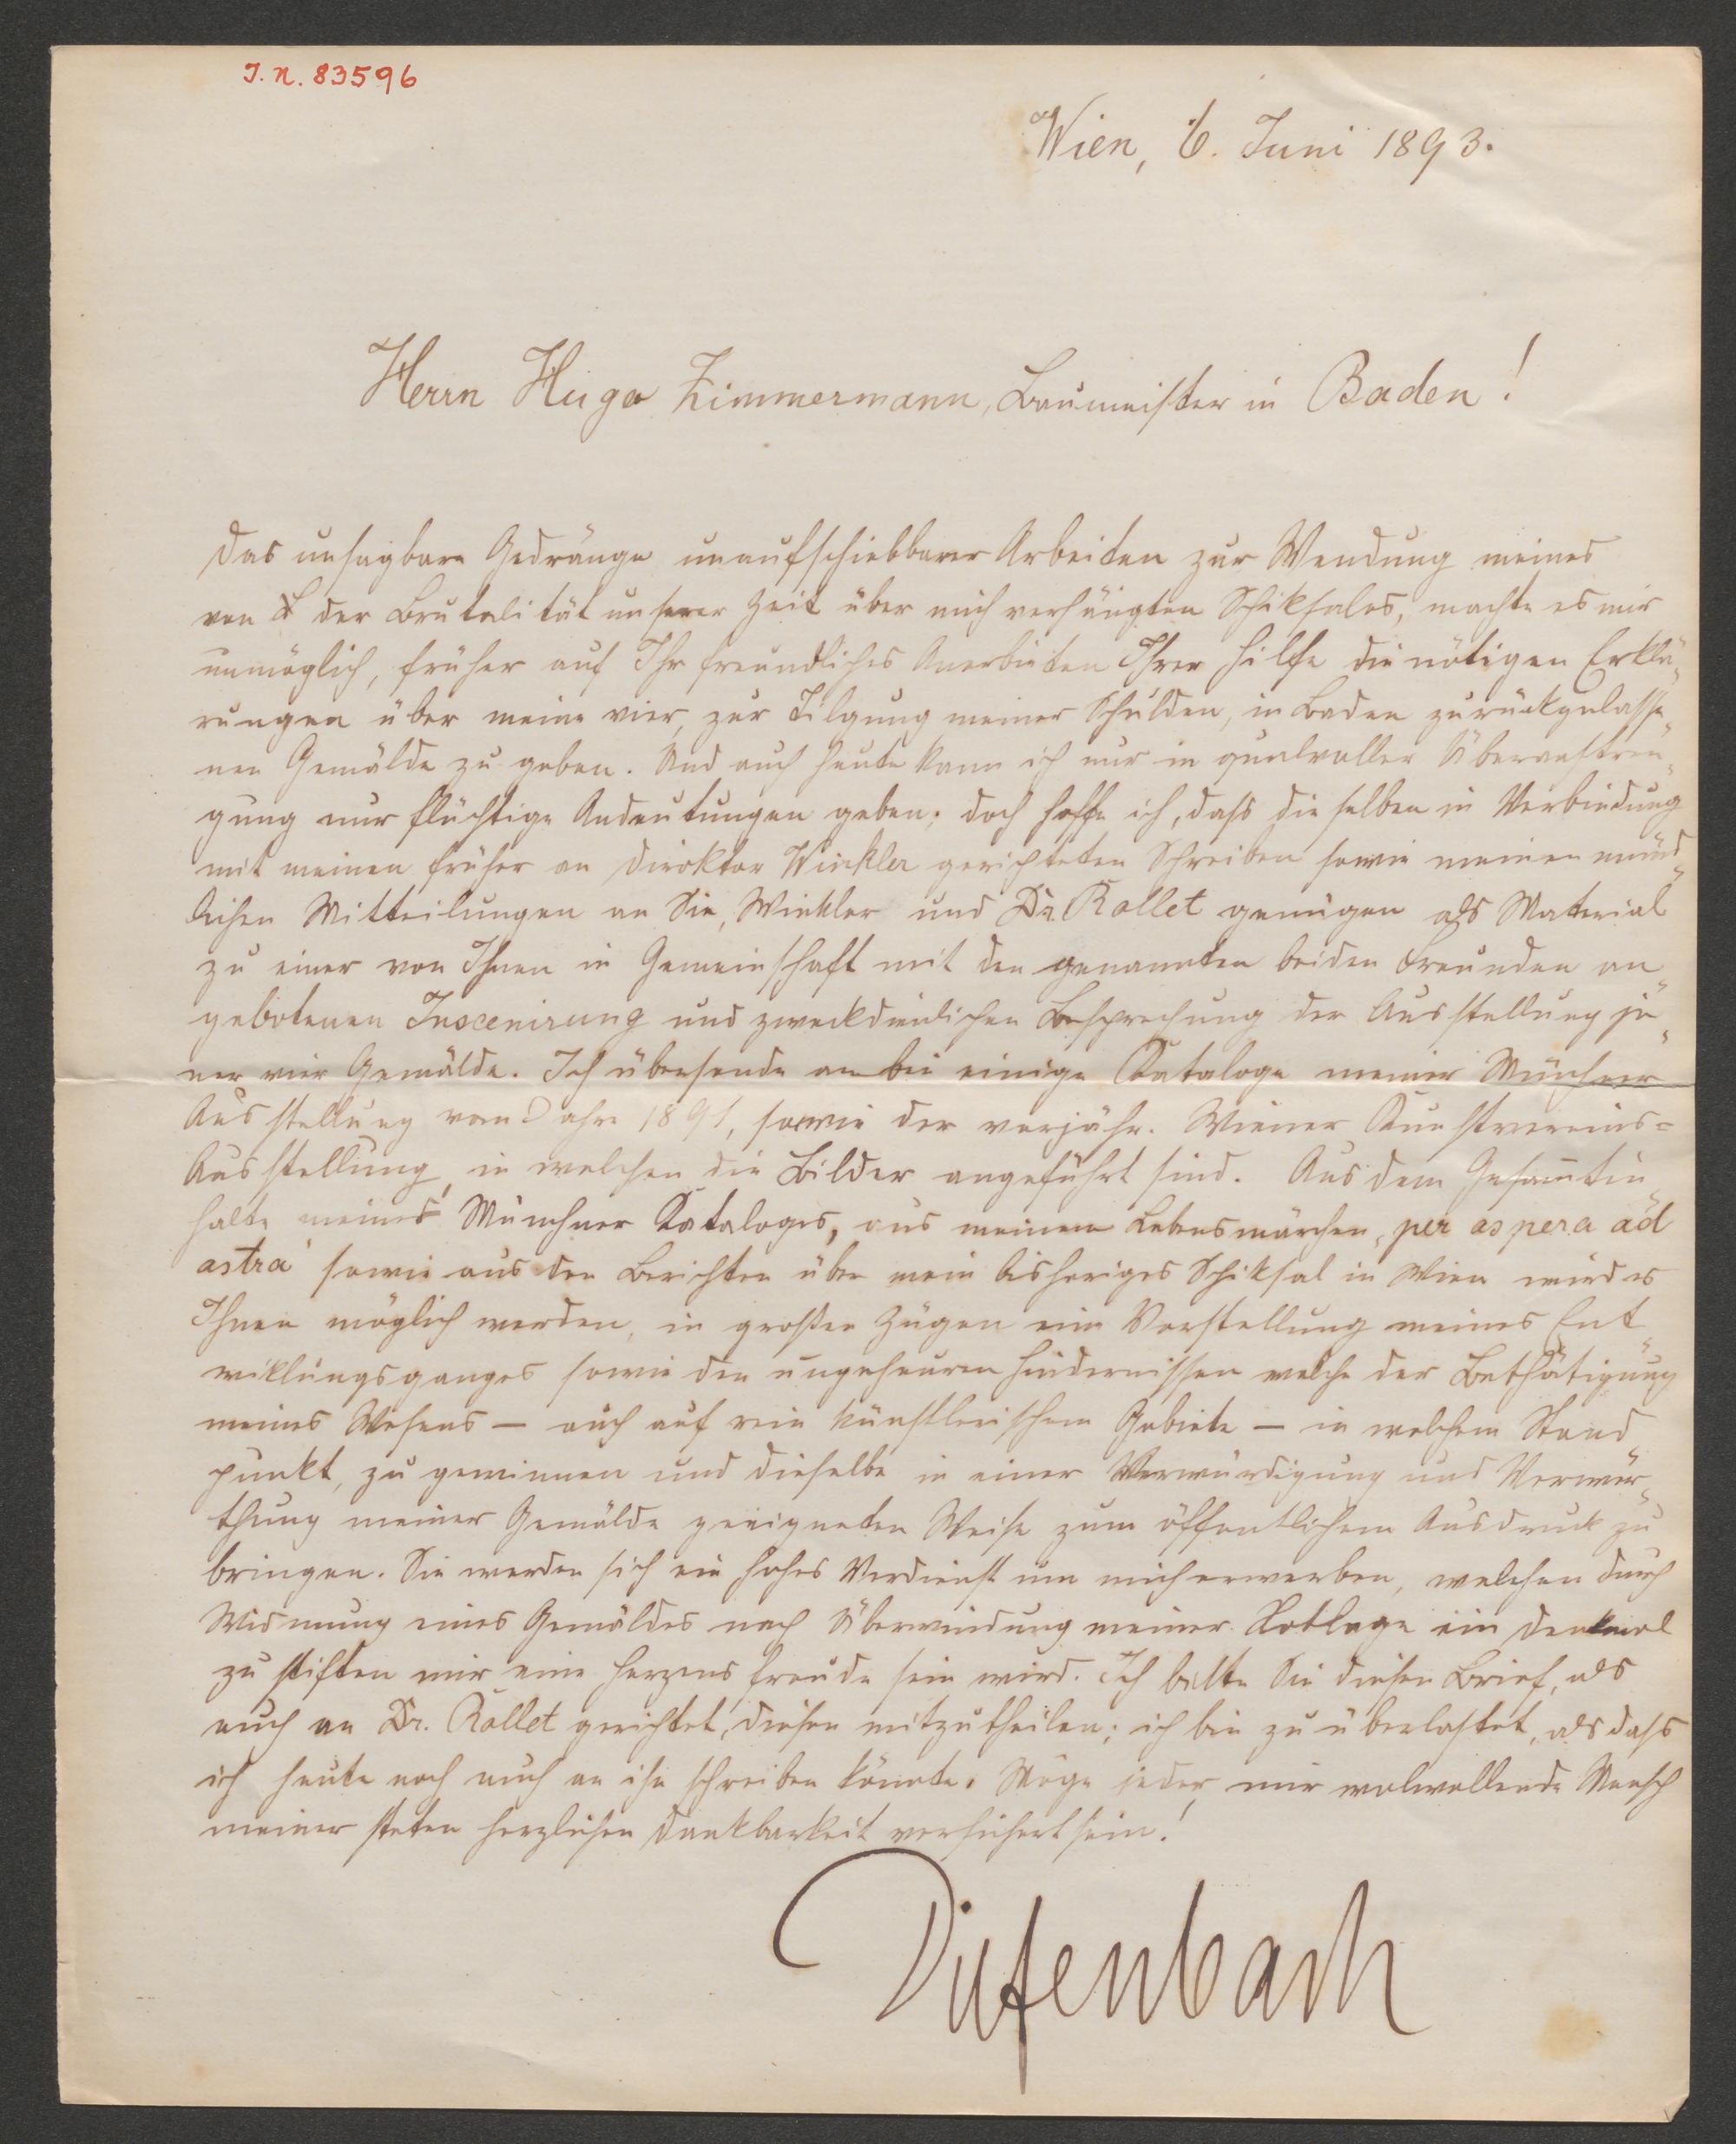 J. N. 83596
Wien, 6. Juni 1893.
Herrn Hugo Zimmermann, Baumeister in Baden!
Das unsagbare Gedränge unaufschiebbarer Arbeiten zur Wendung meines
von der Brutalität unserer Zeit über mich verhängten Schiksales, machte es mir
unmöglich, früher auf Ihr freundliches Anerbieten Ihrer Hilfe die nötigen Erklä-
rungen über meine vier, zur Tilgung meiner Schulden, in Baden zurückgelasse-
nen Gemälde zu geben. Und auch heute kann ich nur in qualvoller Überanstren-
gung nur flüchtige Andeutungen geben; doch hoffe ich, dass dieselben in Verbindung
mit meinen früher an Direktor Winkler gerichteten Schreiben sowie meinen münd-
lichen Mitteilungen an Sie, Winkler und Dr. Rollet genügen als Material
zu einer von Ihnen in Gemeinschaft mit den genannten beiden Freunden an-
gebotenen Inscenirung und zweckdienlichen Besprechung der Ausstellung je-
ner vier Gemälde. Ich übersende anbei einige Kataloge meiner Münchner
Ausstellung vom Jahre 1891, sowie der vorjähr. Wiener Kunstvereins-
Ausstellung, in welchen die Bilder angeführt sind. Aus dem Gesam̅tin-
halte meines Münchner Kataloges, aus meinem Lebensmärchen „per aspera ad
astra" sowie aus den Berichten über mein bisheriges Schiksal in Wien wird es
Ihnen möglich werden, in großen Zügen eine Vorstellung meines Ent-
wiklungsganges sowie den ungeheuren Hindernissen welche der Bethätigung
meines Wesens – auch auf rein künstlerischem Gebiete – in welchem Stand-
punkt, zu gewinnen und dieselbe in einer Verwürdigung und Verwer-
thung meiner Gemälde geeigneten Weise zum öffentlichem Ausdruck zu
bringen. Sie werden sich ein hohes Verdienst um mich erwerben, welchen durch
Widmung eines Gemäldes nach Überwindung meiner Notlage ein Denkmal
zu stiften mir eine Herzensfreude sein wird. Ich bitte Sie diesen Brief, als
auch an Dr. Rollet gerichtet, diesen mitzutheilen; ich bin zu überlastet, als dass
ich heute noch auch an ihn schreiben könnte. Möge jeder, mir wolwollende Mensch
meiner steten herzlichen Dankbarkeit versichert sein!
Diefenbach